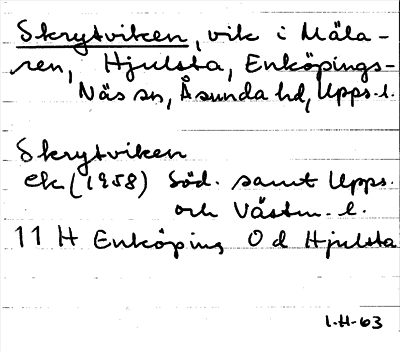 Skrytviken, vik i Mäla-
ren, Hjulsta, Enköpings-
Näs sn, Åsunda hd, Upps. l.
Skrytviken
ek (1958) Söd. samt Upps.
och Västm. l.
11 H Enköping O d Hjulsta
I.H-63